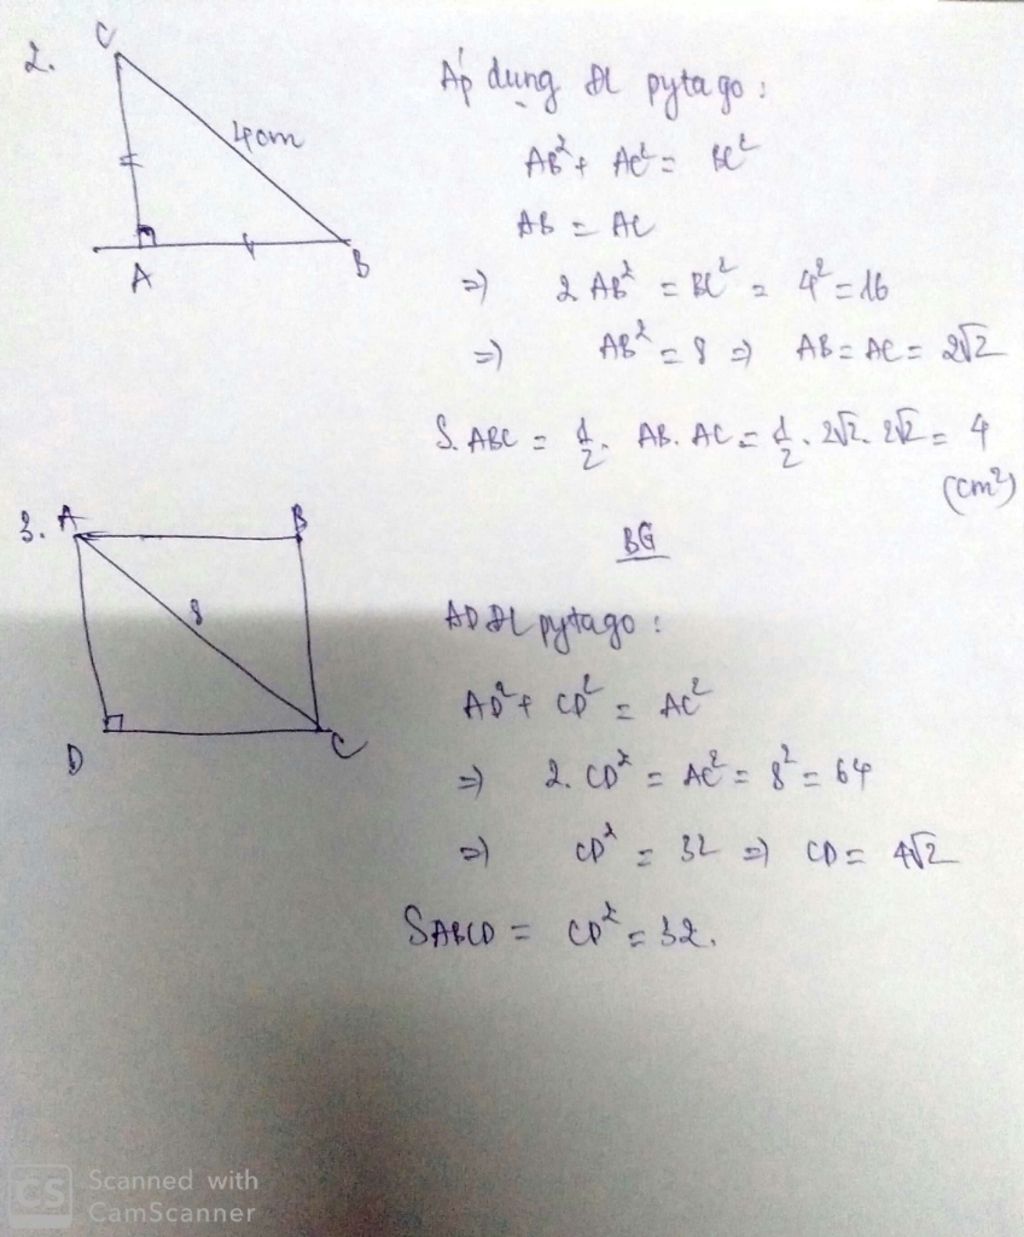 2.
C
4cm
A
B
Áp dụng ĐL pytago :
AB² + AC² = BC²
AB = AC
=> 2 AB² = BC² = 4² = 16
=> AB² = 8 => AB = AC = 2√2
S. ABC = 1/2 . AB. AC = 1/2 . 2√2. 2√2 = 4
(cm²)
3.
A
B
8
D
C
BG
AD ĐL pytago :
AD² + CD² = AC²
=> 2. CD² = AC² = 8² = 64
=> CD² = 32 => CD = 4√2
SABCD = CD² = 32.
CS
Scanned with
CamScanner